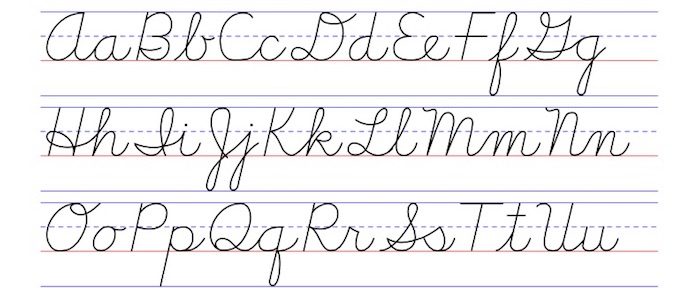 Aa Bb Cc Dd Ee Ff Gg
Hh Ii Jj Kk Ll Mm Nn
Oo Pp Qq Rr Ss Tt Uu